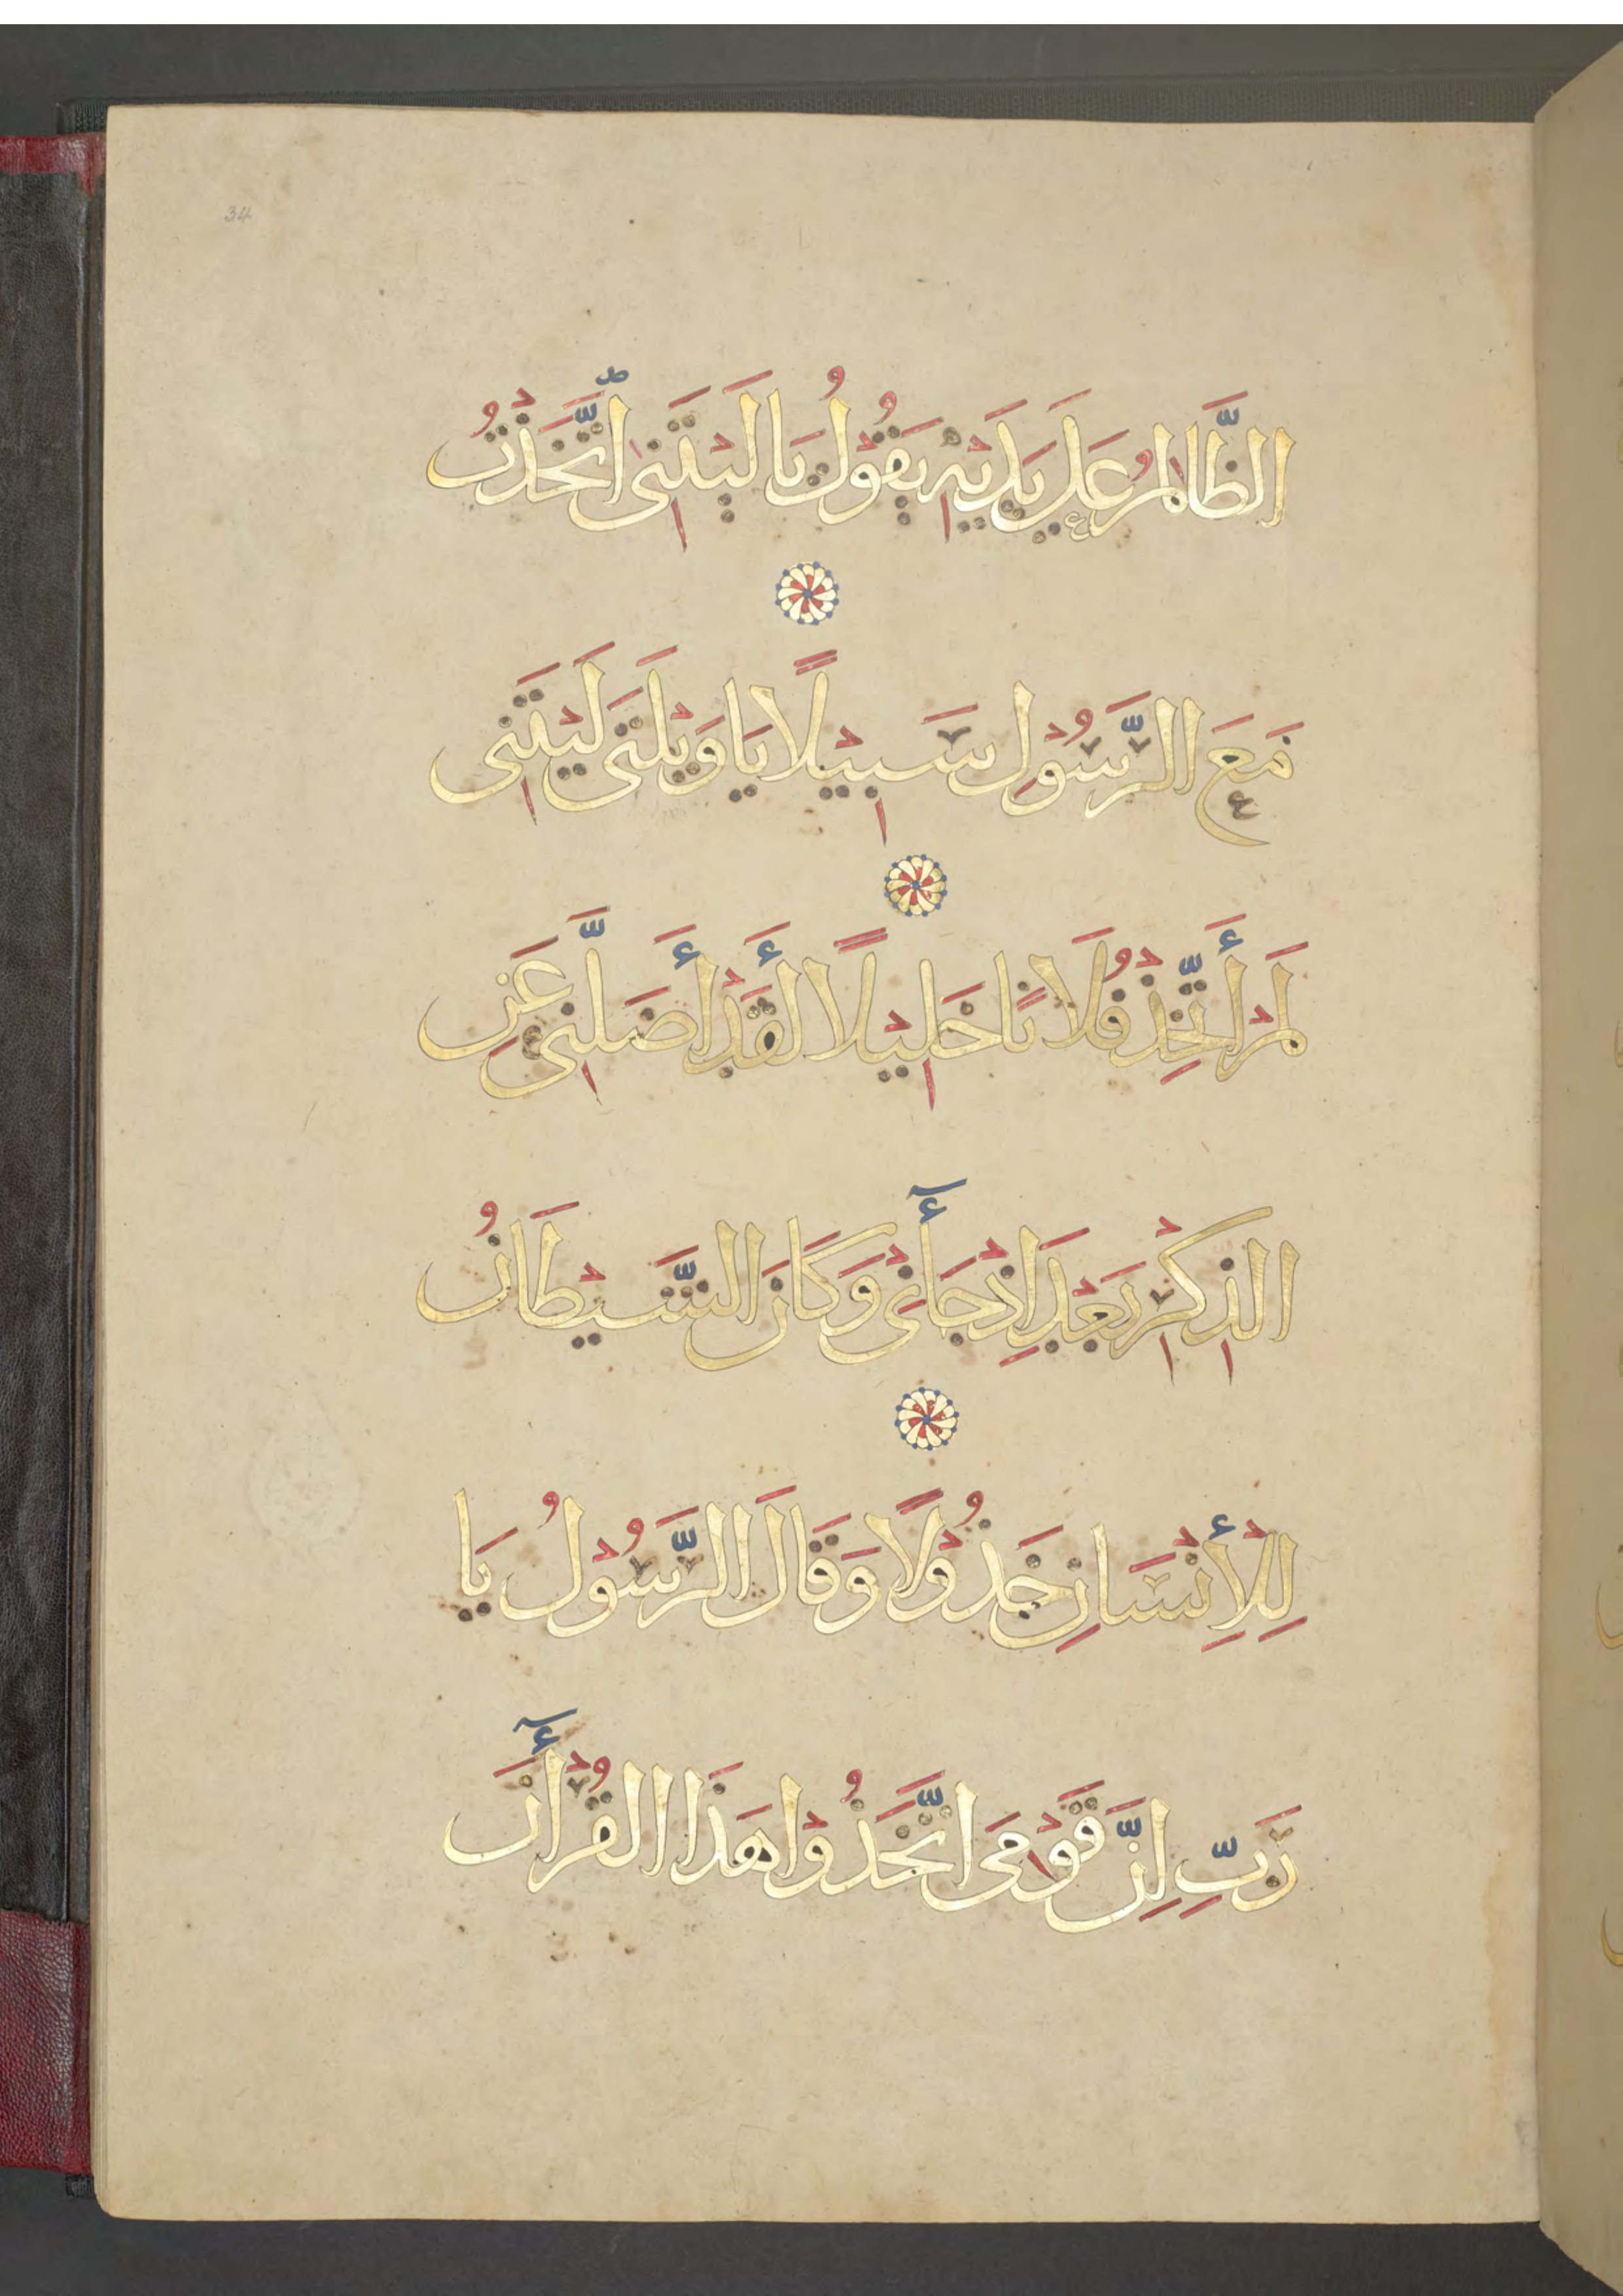 34
الظَّالِمُ عَلَى يَدَيْهِ يَقُولُ يَا لَيْتَنِى اتَّخَذْتُ
مَعَ الرَّسُوْلِ سَبِيْلًا يَا وَيْلَتَى لَيْتَنِى
لَمْ أَتَّخِذْ فُلَانًا خَلِيْلًا لَقَدْ أَضَلَّنِى عَنِ
الذِّكْرِ بَعْدَ إِذْ جَآءَنِى وَكَانَ الشَّيْطَانُ
لِلْإِنْسَانِ خَذُوْلًا وَقَالَ الرَّسُوْلُ يَا
رَبِّ إِنَّ قَوْمِى اتَّخَذُوْا هَذَا الْقُرْأٓنَ